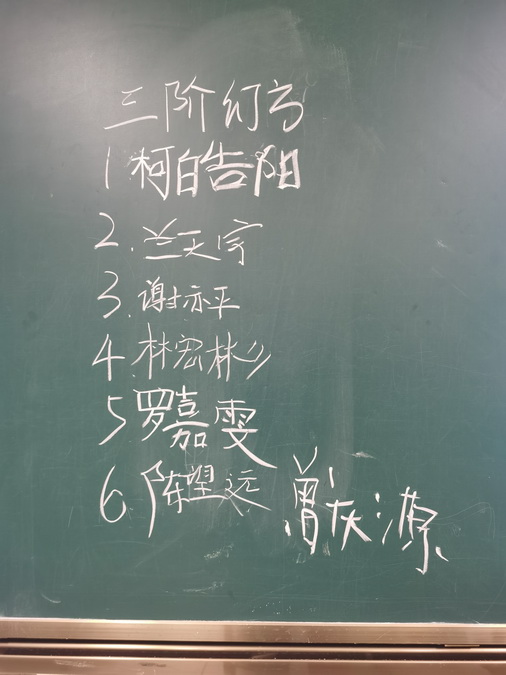 三阶幻方
1 柯皓阳
2. 兰天宇
3. 谢亦平
4 林宏彬
5 罗嘉雯
6 陈望远 曾庆源